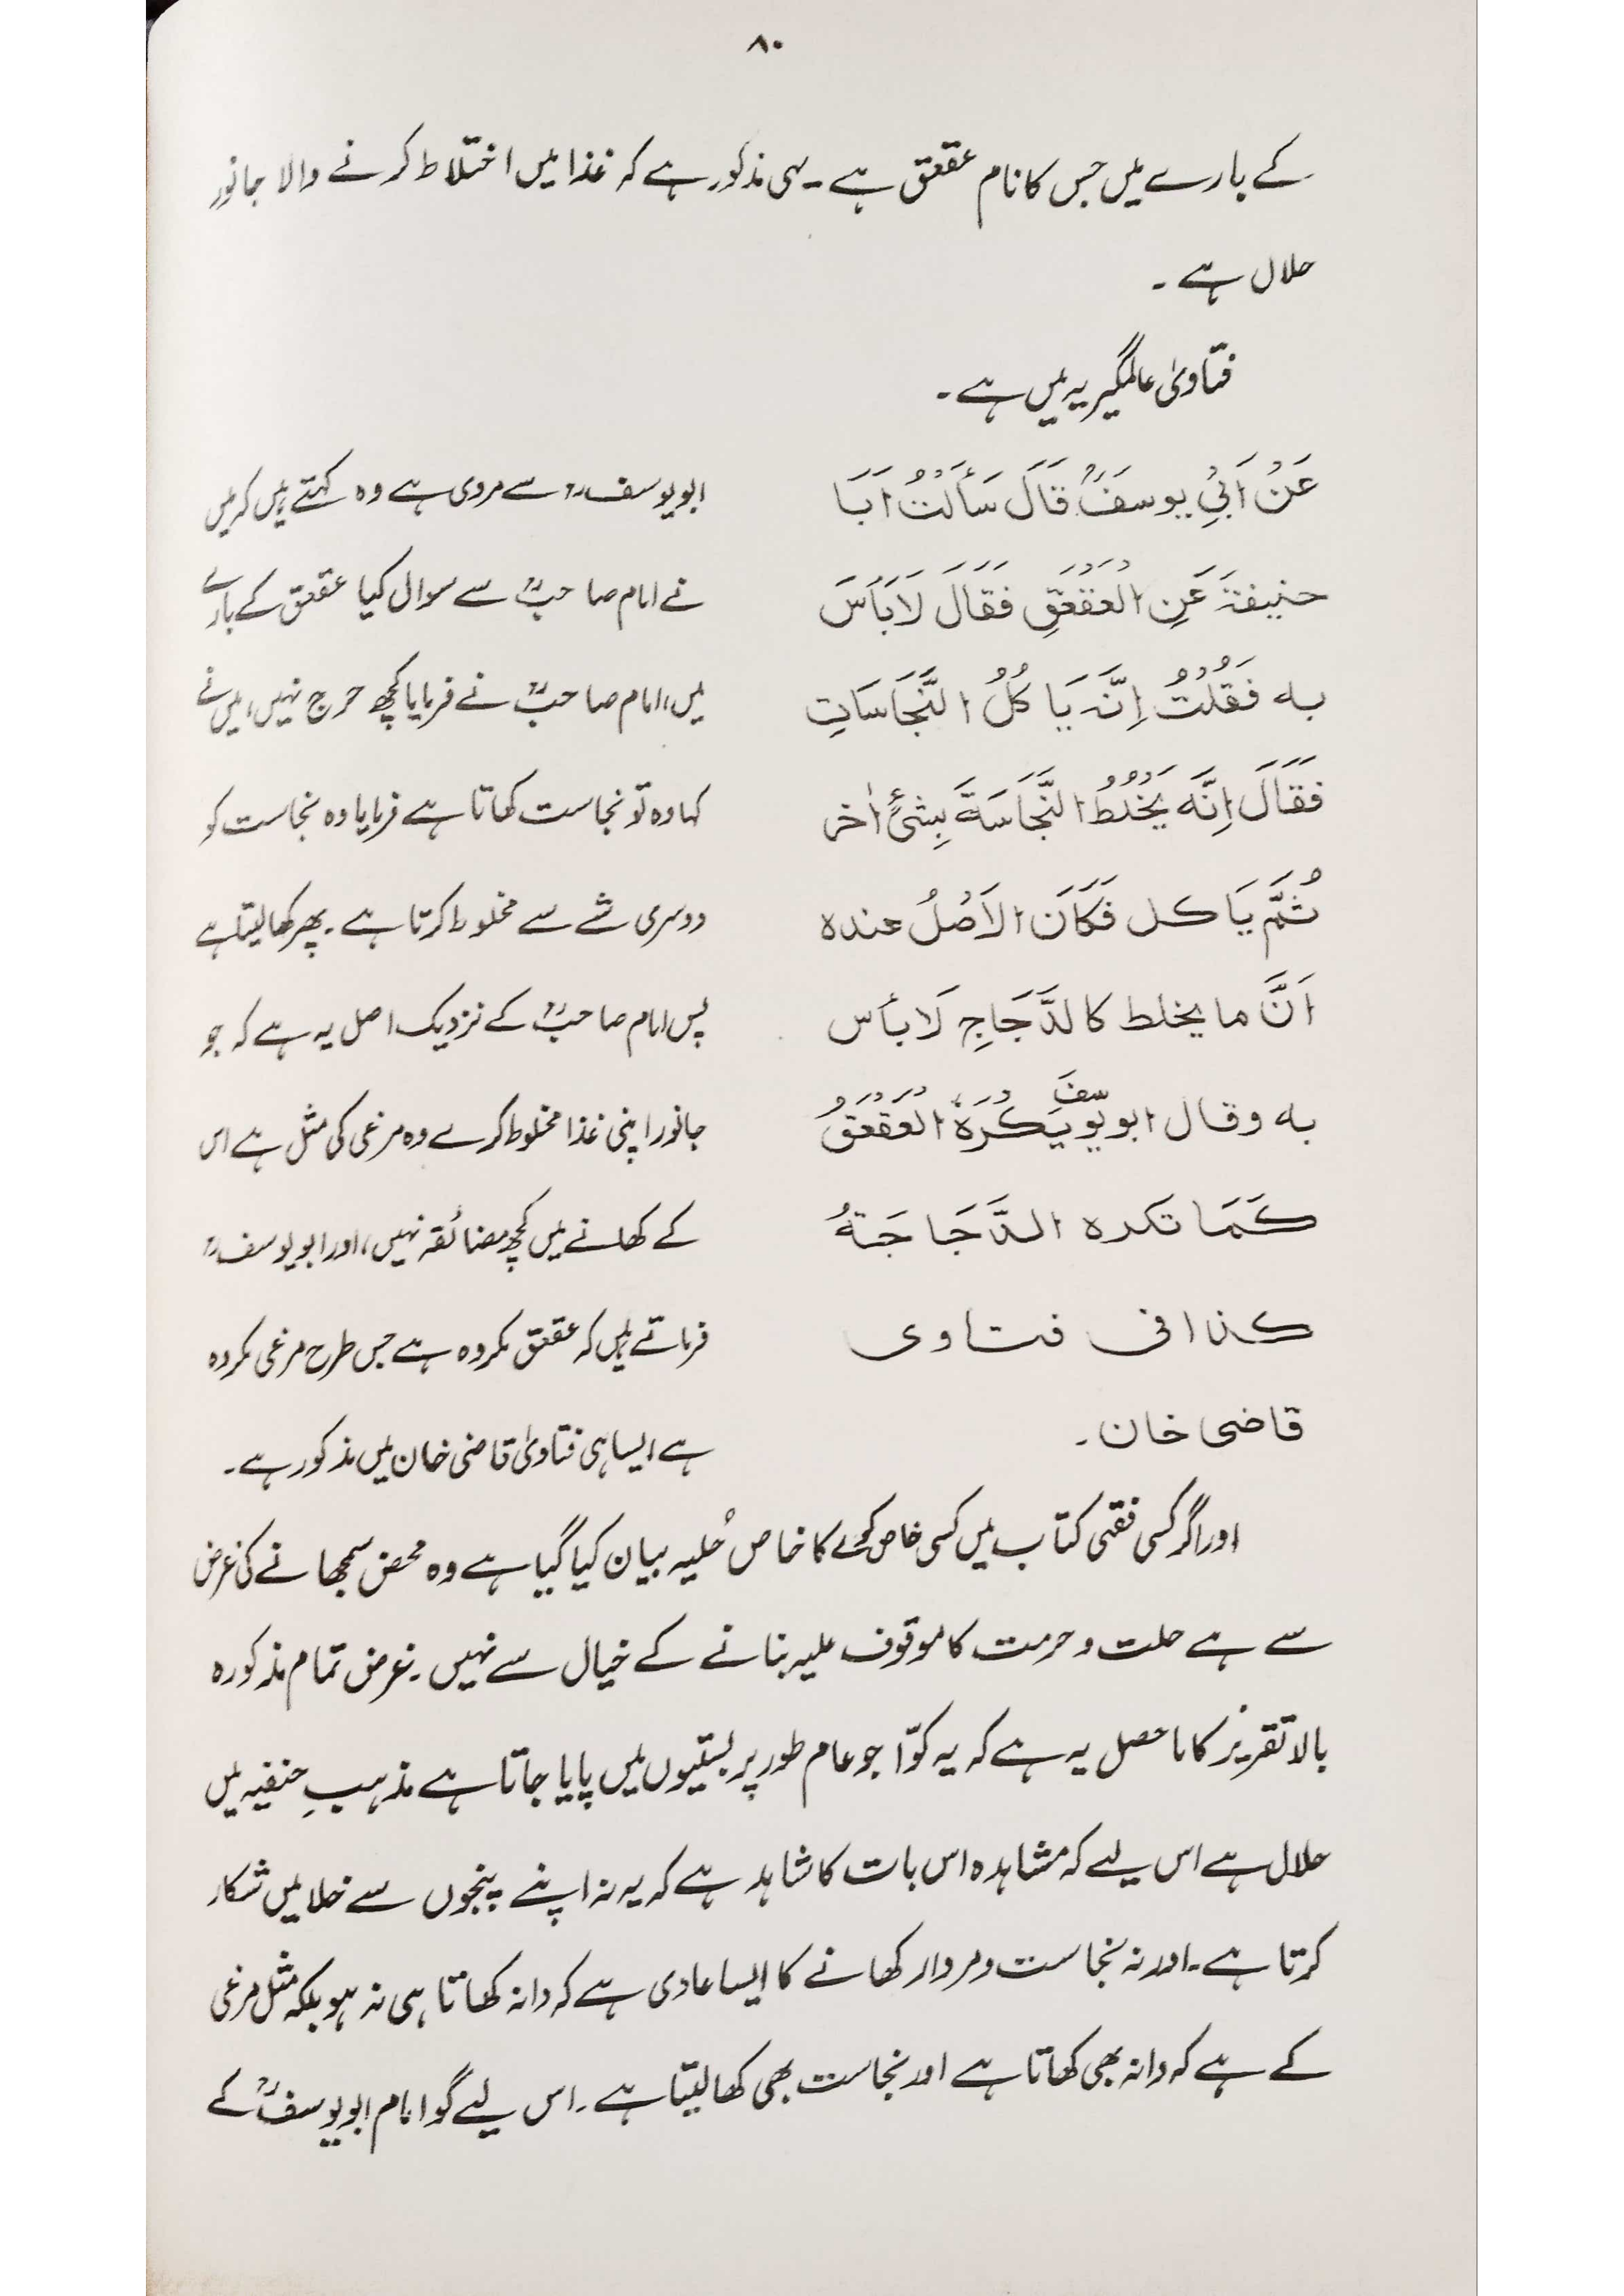 ۸۰
کے بارے میں جس کا نام عقعق ہے۔ یہی مذکور ہے کہ غذا میں اختلاط کرنے والا جانور
حلال ہے۔
فتاویٰ عالمگیریہ میں ہے۔
عَنْ اَبِیْ یوسفَؒ قَالَ سَأَلْتُ اَبَا
حنیفۃَ عَنِ الْعَقْعَقِ فَقَالَ لَا بَأْسَ
به فَقُلْتُ اِنَّہ یَاکُلُ النَّجَاسَاتِ
فَقَالَ اِنَّه یَخْلُطُ النَّجَاسَةَ بِشَیْءٍ اٰخر
ثُمَّ یَاکل فَکَانَ الْاَصْلُ عندہ
اَنَّ ما یخلط کالدَّجَاجِ لَا بأس
به وقال ابو یوسفَ یَکْرَہُ الْعَقْعَقُ
کَمَا تکرہ الدَّجَاجَةُ
کذا فی فتاوی
قاضی خان۔
ابو یوسفؒ سے مروی ہے وہ کہتے ہیں کہ میں
نے امام صاحبؒ سے سوال کیا عقعق کے بارے
میں، امام صاحبؒ نے فرمایا کچھ حرج نہیں، میں نے
کہا وہ تو نجاست کھاتا ہے فرمایا وہ نجاست کو
دوسری شے سے مخلوط کرتا ہے۔ پھر کھا لیتا ہے
پس امام صاحبؒ کے نزدیک اصل یہ ہے کہ جو
جانور اپنی غذا مخلوط کرے وہ مرغی کی مثل ہے اس
کے کھانے میں کچھ مضائقہ نہیں، اور ابو یوسفؒ
فرماتے ہیں کہ عقعق مکروہ ہے جس طرح مرغی مکروہ
ہے ایسا ہی فتاویٰ قاضی خان میں مذکور ہے۔
اور اگر کسی فقہی کتاب میں کسی خاص کوے کا خاص حُلیہ بیان کیا گیا ہے وہ محض سمجھانے کی غرض
سے ہے حلت و حرمت کا موقوف علیہ بنانے کے خیال سے نہیں۔ غرض تمام مذکورہ
بالا تقریر کا ماحصل یہ ہے کہ یہ کوّا جو عام طور پر بستیوں میں پایا جاتا ہے مذہبِ حنفیہ میں
حلال ہے اس لیے کہ مشاہدہ اس بات کا شاہد ہے کہ یہ نہ اپنے پنجوں سے خلا میں شکار
کرتا ہے۔ اور نہ نجاست و مردار کھانے کا ایسا عادی ہے کہ دانہ کھاتا ہی نہ ہو بلکہ مثل مرغی
کے ہے کہ دانہ بھی کھاتا ہے اور نجاست بھی کھا لیتا ہے۔ اس لیے گو امام ابو یوسفؒ کے